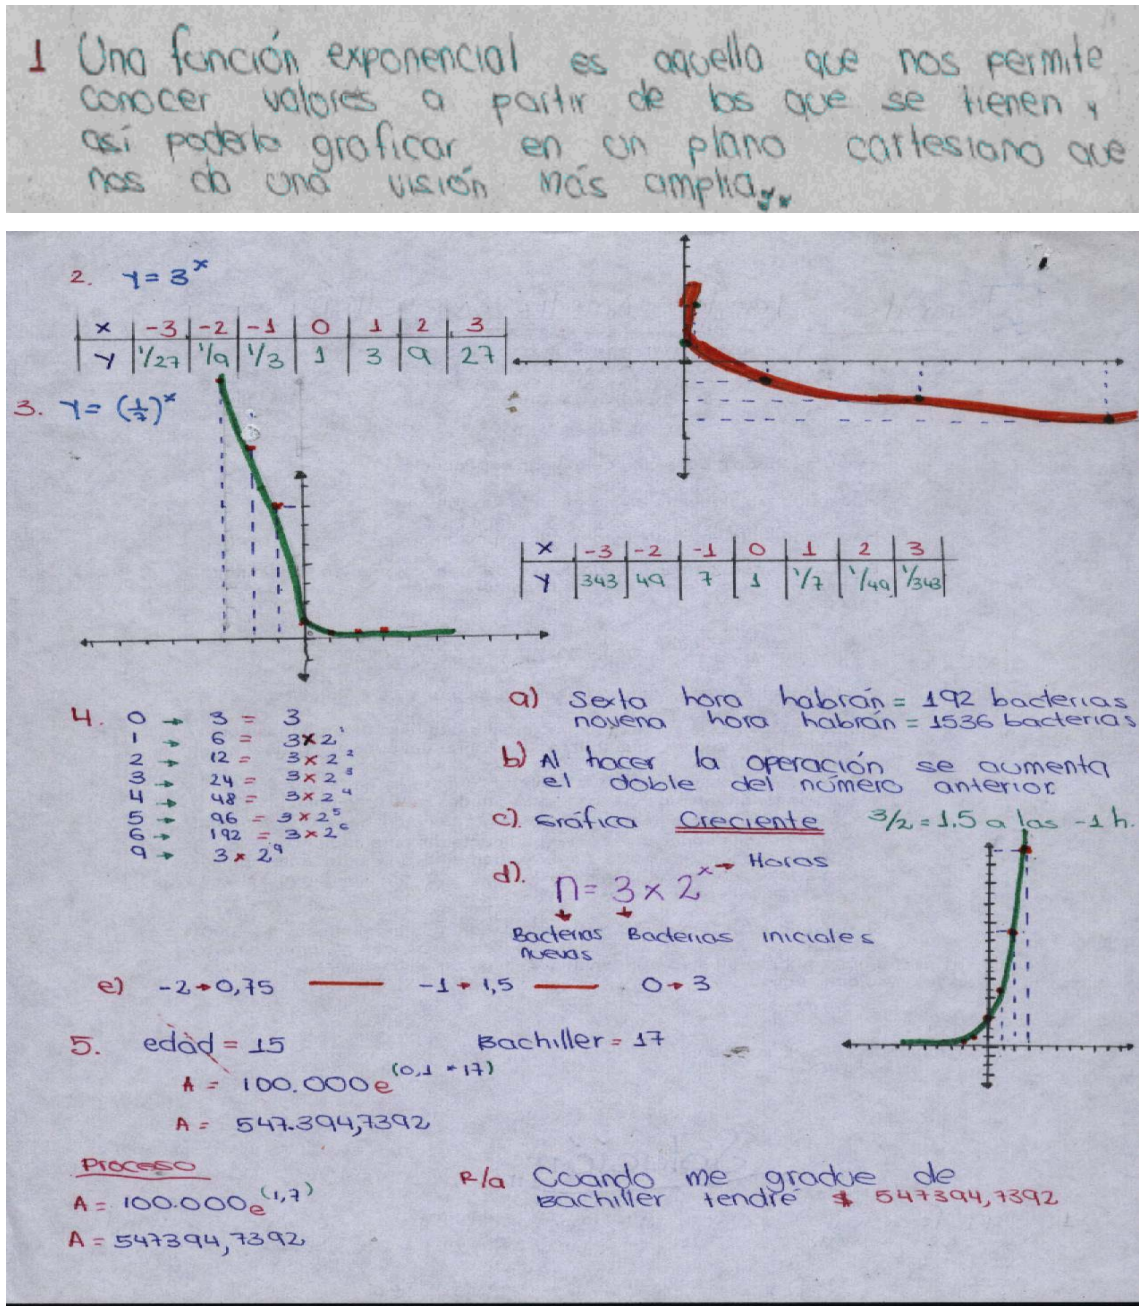 1 Una función exponencial es aquella que nos permite
conocer valores a partir de los que se tienen y
así poderlo graficar en un plano cartesiano que
nos da una visión más amplia
2. y = 3^x
x -3 -2 -1 0 1 2 3
y 1/27 1/9 1/3 1 3 9 27
3. y = (1/7)^x
x -3 -2 -1 0 1 2 3
y 343 49 7 1 1/7 1/49 1/343
4. 0 → 3 = 3
1 → 6 = 3×2^1
2 → 12 = 3×2^2
3 → 24 = 3×2^3
4 → 48 = 3×2^4
5 → 96 = 3×2^5
6 → 192 = 3×2^6
9 → 3×2^9
a) Sexta hora habrán = 192 bacterias
novena hora habrán = 1536 bacterias
b) Al hacer la operación se aumenta
el doble del número anterior
c). Gráfica Creciente 3/2 = 1.5 a las -1 h.
d). n = 3 × 2^x → Horas
Bacterias Bacterias iniciales
nuevas
e) -2 → 0,75 -1 → 1,5 0 → 3
5. edad = 15 Bachiller = 17
A = 100.000e^(0,1 * 17)
A = 547.394,7392
Proceso
A = 100.000e^(1,7)
A = 547394,7392
R/a Cuando me gradue de
Bachiller tendré $ 547394,7392